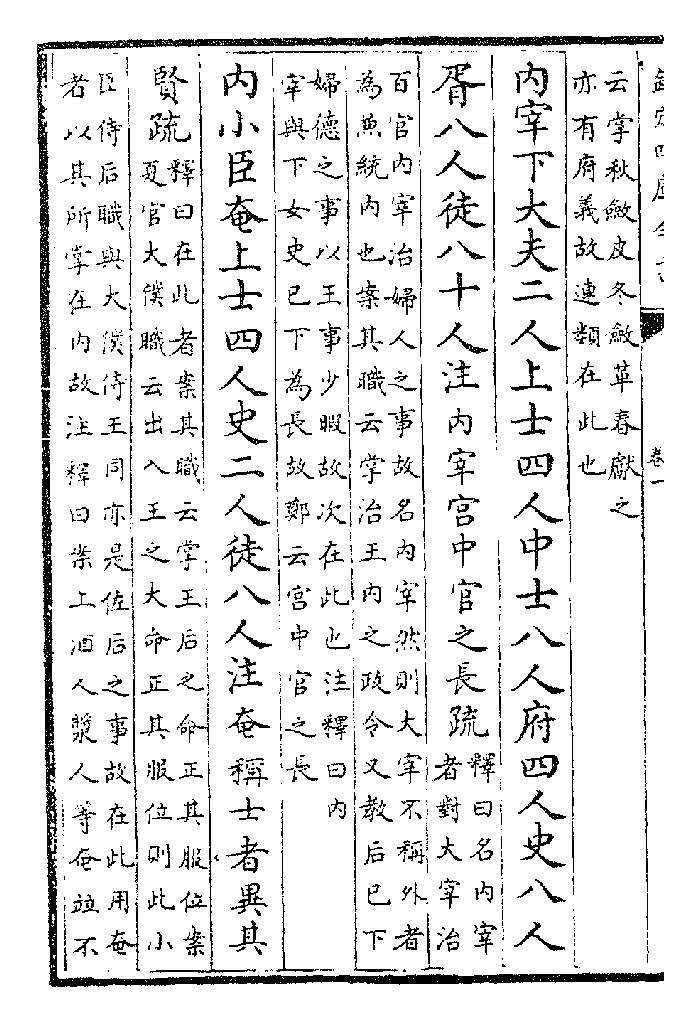 欽定四庫全書
卷一
云掌秋斂皮冬斂革春獻之
亦有府義故連類在此也
内宰下大夫二人上士四人中士八人府四人史八人
胥八人徒八十人注内宰宫中官之長疏
釋曰名内宰
者對大宰治
百官内宰治婦人之事故名内宰然則大宰不稱外者
為兼統内也案其職云掌治王内之政令又教后已下
婦德之事以王事少暇故次在此也注釋曰内
宰與下女史已下為長故鄭云宫中官之長
内小臣奄上士四人史二人徒八人注奄稱士者異其
賢疏
釋曰在此者案其職云掌王后之命正其服位案
夏官大僕職云出入王之大命正其服位則此小
臣侍后職與大僕侍王同亦是佐后之事故在此用奄
者以其所掌在内故注釋曰案上酒人漿人等奄竝不